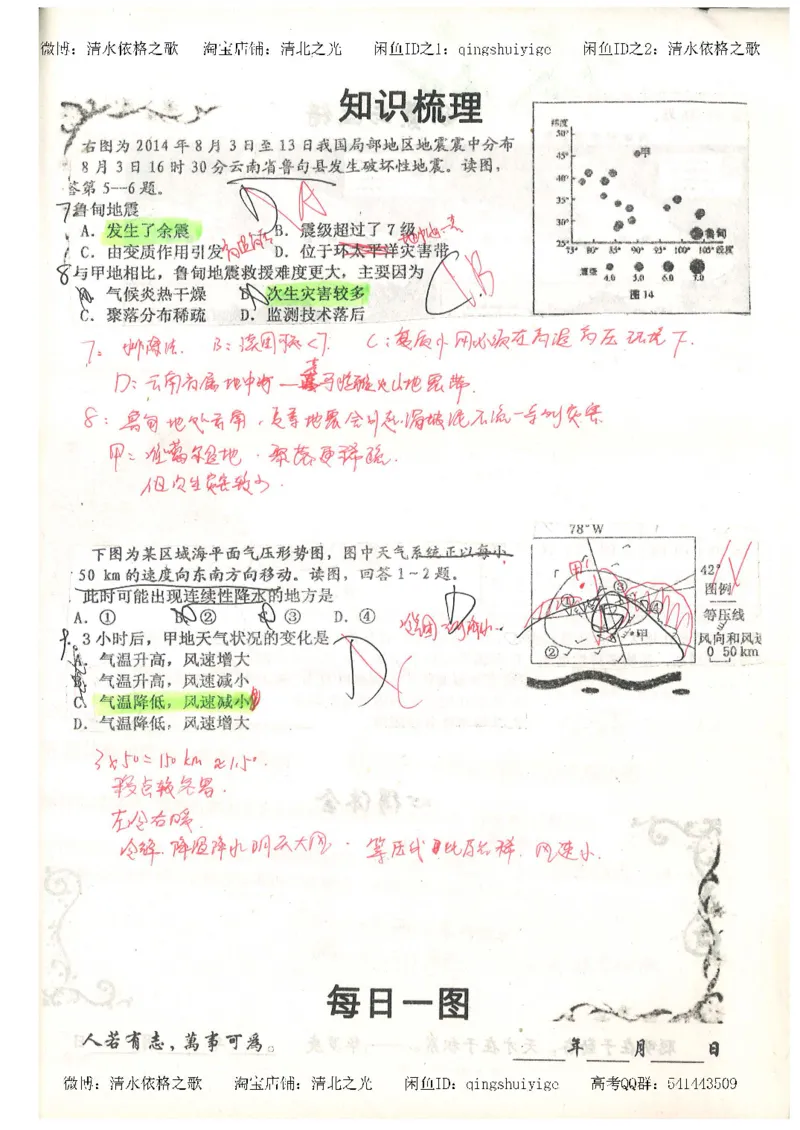 微博：清水依格之歌 淘宝店铺：清北之光 闲鱼ID之1：qingshuiyige 闲鱼ID之2：清水依格之歌
知识梳理
右图为 2014 年 8 月 3 日至 13 日我国局部地区地震震中分布
8 月 3 日 16 时 30 分云南省鲁甸县发生破坏性地震。读图，
答第 5—6 题。
7 鲁甸地震
A. 发生了余震 B. 震级超过了 7 级
C. 由变质作用引发 D. 位于环太平洋灾害带
8 与甲地相比，鲁甸地震救援难度更大，主要因为
A. 气候炎热干燥 B. 次生灾害较多
C. 聚落分布稀疏 D. 监测技术落后
纬度
50°
45° 甲
40°
35°
30°
鲁甸
25°
75° 80° 85° 90° 95° 100° 105° 经度
震级 4.0 5.0 6.0 7.0
图 14
D A
B
7：
B：震级 <7.
C：变质作用必须在高温高压环境下.
D：云南为属地中海—喜马拉雅火山地震带.
8：鲁甸地处云南，
甲：准噶尔盆地．聚落更稀疏.
但次生灾害较少.
下图为某区域海平面气压形势图，图中天气系统正以每小
50 km 的速度向东南方向移动。读图，回答 1～2 题。
此时可能出现连续性降水的地方是
A. ① B. ② C. ③ D. ④
9. 3 小时后，甲地天气状况的变化是
A. 气温升高，风速增大
B. 气温升高，风速减小
C. 气温降低，风速减小
D. 气温降低，风速增大
78° W
42°
图例
等压线
风向和风速
0 50 km
① ② ③ ④ 甲
D
D C
3×50=150 km ≈1.5°.
左冷右暖.
冷锋．降温降水阴天大风．等压线 风速小.
每日一图
人若有志，萬事可為。
年 月 日
微博：清水依格之歌 淘宝店铺：清北之光 闲鱼ID：qingshuiyige 高考QQ群：541443509